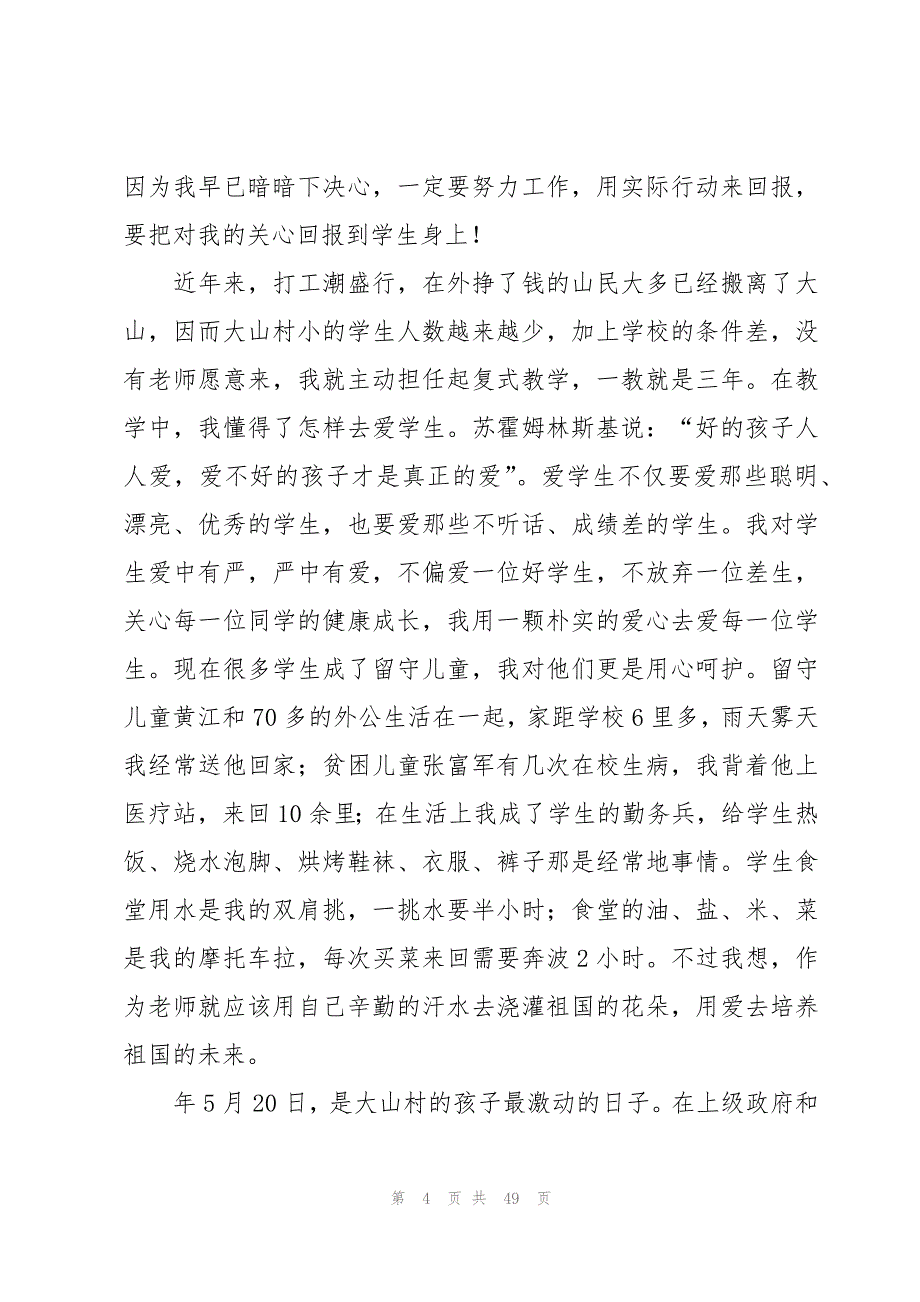 因为我早已暗暗下决心，一定要努力工作，用实际行动来回报，
要把对我的关心回报到学生身上！
近年来，打工潮盛行，在外挣了钱的山民大多已经搬离了大
山，因而大山村小的学生人数越来越少，加上学校的条件差，没
有老师愿意来，我就主动担任起复式教学，一教就是三年。在教
学中，我懂得了怎样去爱学生。苏霍姆林斯基说：“好的孩子人
人爱，爱不好的孩子才是真正的爱”。爱学生不仅要爱那些聪明、
漂亮、优秀的学生，也要爱那些不听话、成绩差的学生。我对学
生爱中有严，严中有爱，不偏爱一位好学生，不放弃一位差生，
关心每一位同学的健康成长，我用一颗朴实的爱心去爱每一位学
生。现在很多学生成了留守儿童，我对他们更是用心呵护。留守
儿童黄江和 70 多的外公生活在一起，家距学校 6 里多，雨天雾天
我经常送他回家；贫困儿童张富军有几次在校生病，我背着他上
医疗站，来回 10 余里；在生活上我成了学生的勤务兵，给学生热
饭、烧水泡脚、烘烤鞋袜、衣服、裤子那是经常地事情。学生食
堂用水是我的双肩挑，一挑水要半小时；食堂的油、盐、米、菜
是我的摩托车拉，每次买菜来回需要奔波 2 小时。不过我想，作
为老师就应该用自己辛勤的汗水去浇灌祖国的花朵，用爱去培养
祖国的未来。
年 5 月 20 日，是大山村的孩子最激动的日子。在上级政府和
第 4 页 共 49 页